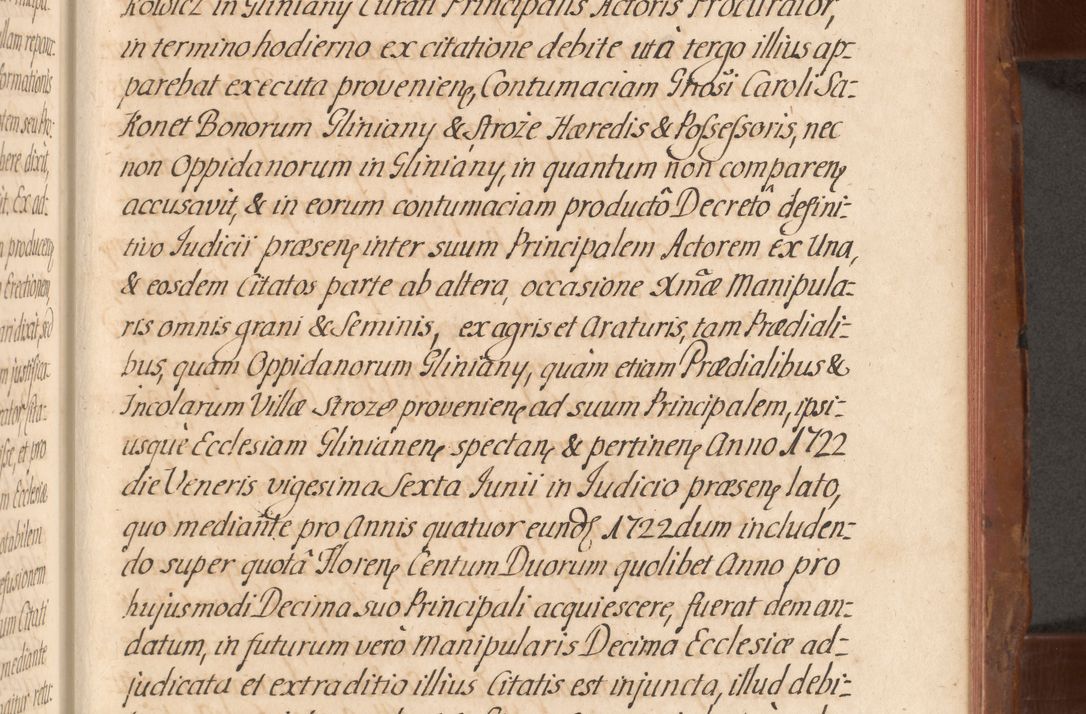 kowicz in Gliniany Curati Principalis Actoris Procurator,
in termino hodierno ex citatione debite uti à tergo illius ap:
parebat executa provenienę, Contumaciam Gnosi Caroli Sa:
konet Bonorum Gliniany & Stroże Hæredis & Possessoris, nec
non Oppidanorum in Gliniany, in quantum non comparenę
accusavit, & in eorum contumaciam productô Decretô defini:
tivo Iudicii præsenę inter suum Principalem Actorem ex Una,
& eosdem Citatos parte ab altera, occasione Xmæ Manipula:
ris omnis grani & Seminis, ex agris et Araturis, tam Prædiali:
bus, quam Oppidanorum Gliniany, quàm etiam Prædialibus &
Incolarum Villæ Stroze provenienę ad suum Principalem, ipsi:
usque Ecclesiam Glinianenę spectanę & pertinenę Anno 1722
die Veneris vigesima Sexta Iunii in Iudicio præsenę lato,
quo mediante pro Annis quatuor eund 1722 dum includen:
do super quotâ Florenę Centum Duorum quolibet Anno pro
hujusmodi Decima suo Principali acquiescere, fuerat deman:
datum, in futurum verò Manipularis Decima Ecclesiæ ad:
judicata et extraditio illius Citatis est injuncta, illud debi: